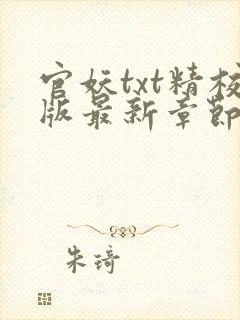 官妖txt精校
版最新章節
朱琦